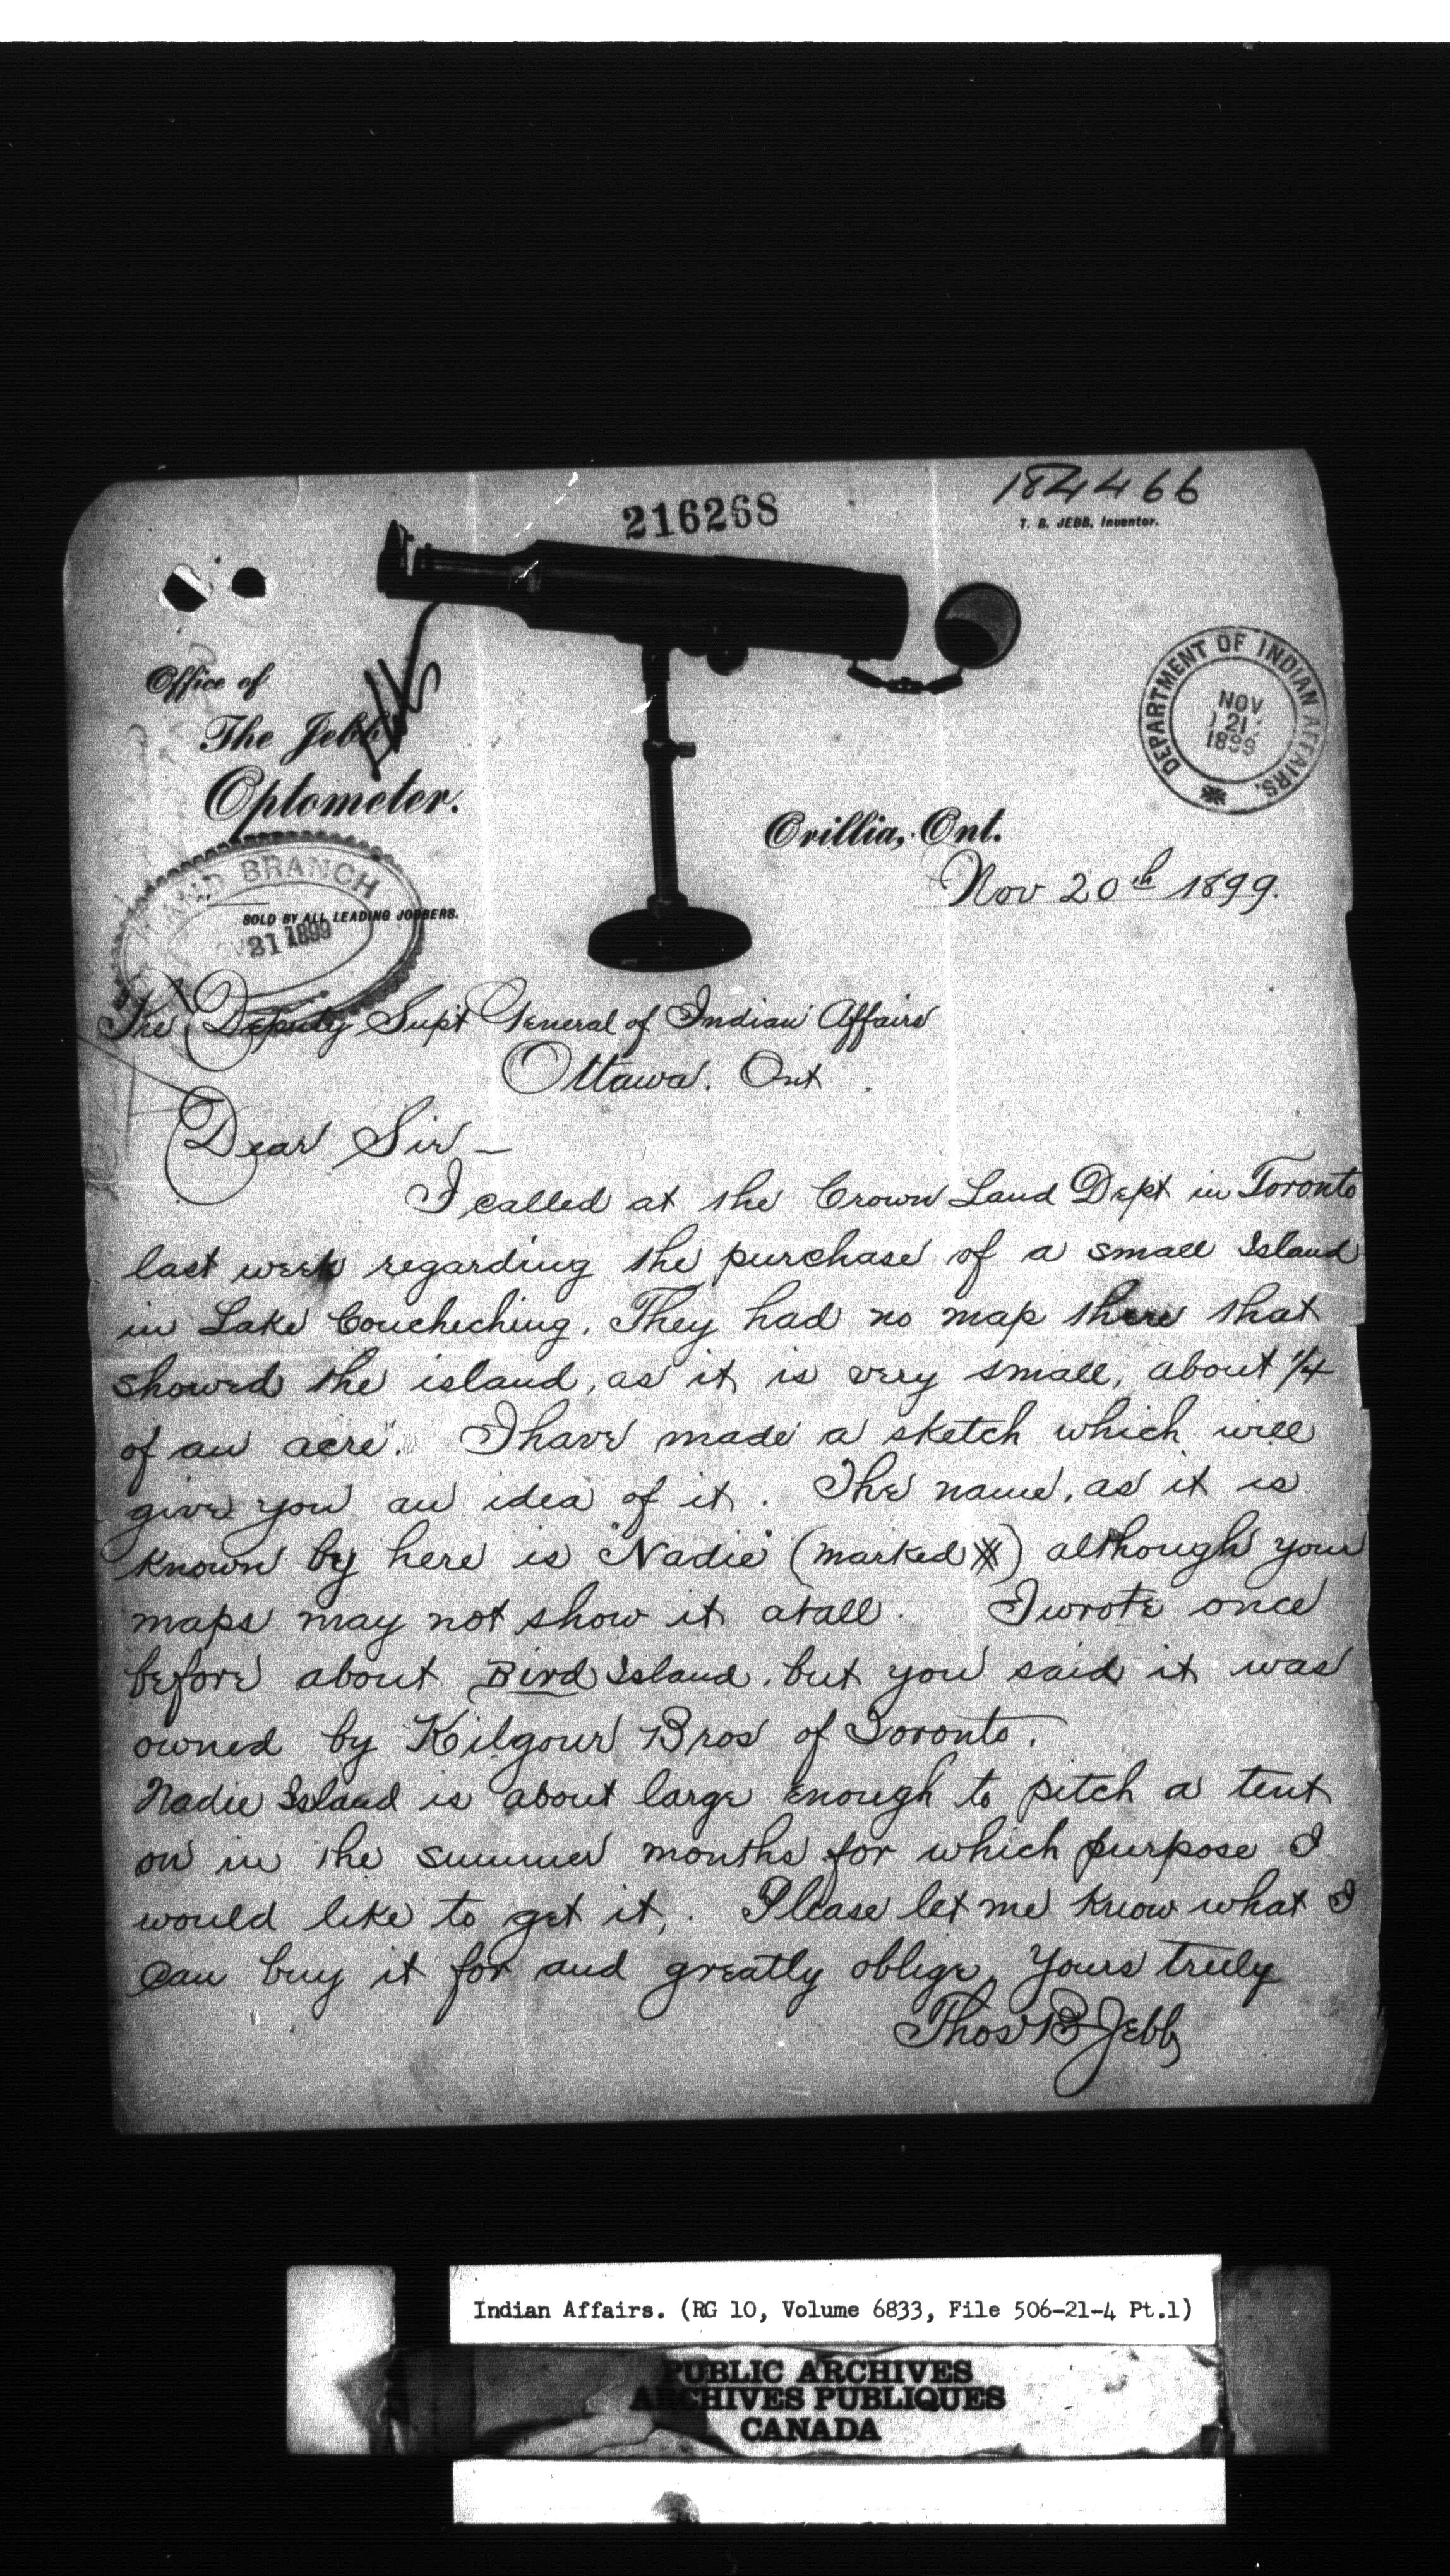 184466
216268
T. B. JEBB, Inventor.
Office of
The Jebb
Optometer.
DEPARTMENT OF INDIAN AFFAIRS.
NOV
21
1899
Orillia, Ont.
Nov 20th 1899.
LAND BRANCH
SOLD BY ALL LEADING JOBBERS.
NOV 21 1899
The Deputy Supt General of Indian Affairs
Ottawa. Ont
Dear Sir —
I called at the Crown Land Dept in Toronto
last week regarding the purchase of a small Island
in Lake Coucheching. They had no map there that
showed the island, as it is very small, about 1/4
of an acre. I have made a sketch which will
give you an idea of it. The name, as it is
known by here is "Nadie" (marked X) although your
maps may not show it atall. I wrote once
before about Bird Island, but you said it was
owned by Kilgour Bros of Toronto.
Nadie Island is about large enough to pitch a tent
on in the summer months for which purpose I
would like to get it. Please let me know what I
can buy it for and greatly oblige, Yours truly
Thos B Jebb
Indian Affairs. (RG 10, Volume 6833, File 506-21-4 Pt.1)
PUBLIC ARCHIVES
ARCHIVES PUBLIQUES
CANADA